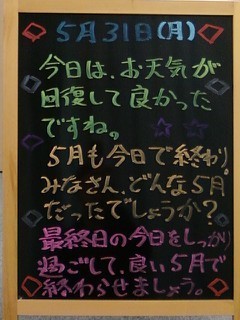 5月31日(月)
今日は、お天気が
回復して良かった
ですね。
5月も今日で終わり。
みなさん、どんな5月
だったでしょうか?
最終日の今日をしっかり
過ごして、良い5月で
終わらせましょう。